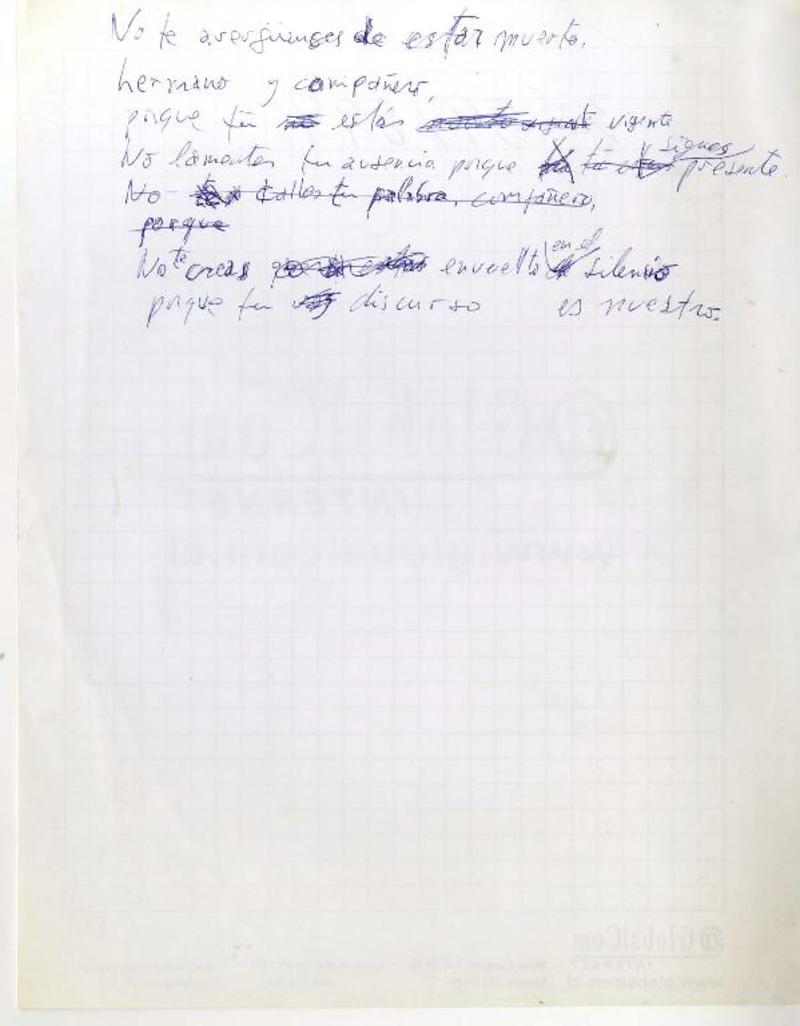 No te avergüences de estar muerto,
hermano y compañero,
porque tú no estás vigente
No lamentes tu ausencia porque tú y sigues presente.
No calles tu palabra, compañero,
porque
No te creas envuelto en el silencio
porque tu discurso es nuestro.
@GlobalCom
INTERNET
www.globalcom.cl
@GlobalCom
INTERNET
www.globalcom.cl